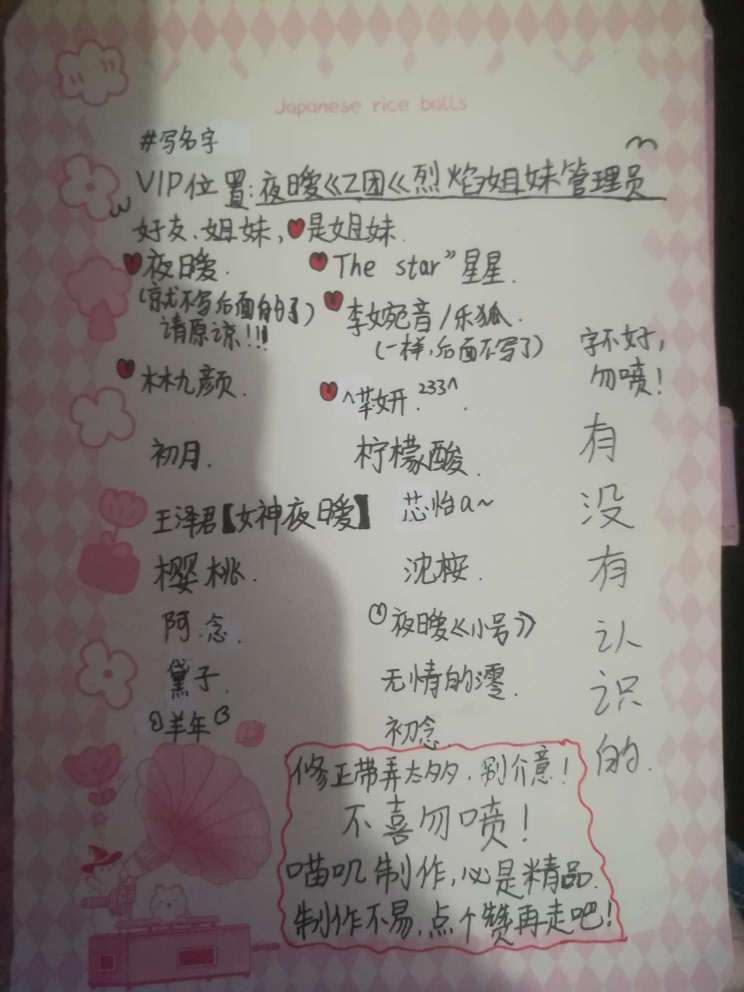 Japanese rice balls
#写名字
VIP位置:夜暧《Z团《烈焰姐妹管理员
好友、姐妹,♥是姐妹.
♥夜暧.
♥The star”星星.
(京尤不写后面自的了)
请原谅!!!
♥李婉音/乐狐.
(一样,后面不写了)
字不好,
勿喷!
♥林九颜.
♥^茾妍.²³³^.
初月.
柠檬酸.
王泽君【女神夜暧】
芯怡a~
樱桃.
沈桉.
阿念.
夜暧《小号》
黛子.
无情的澪.
羊年
初念.
有
没
有
认
识
的.
修正带弄太多,别介意!
不喜勿喷!
喵叽制作,必是精品.
制作不易,点个赞再走吧!